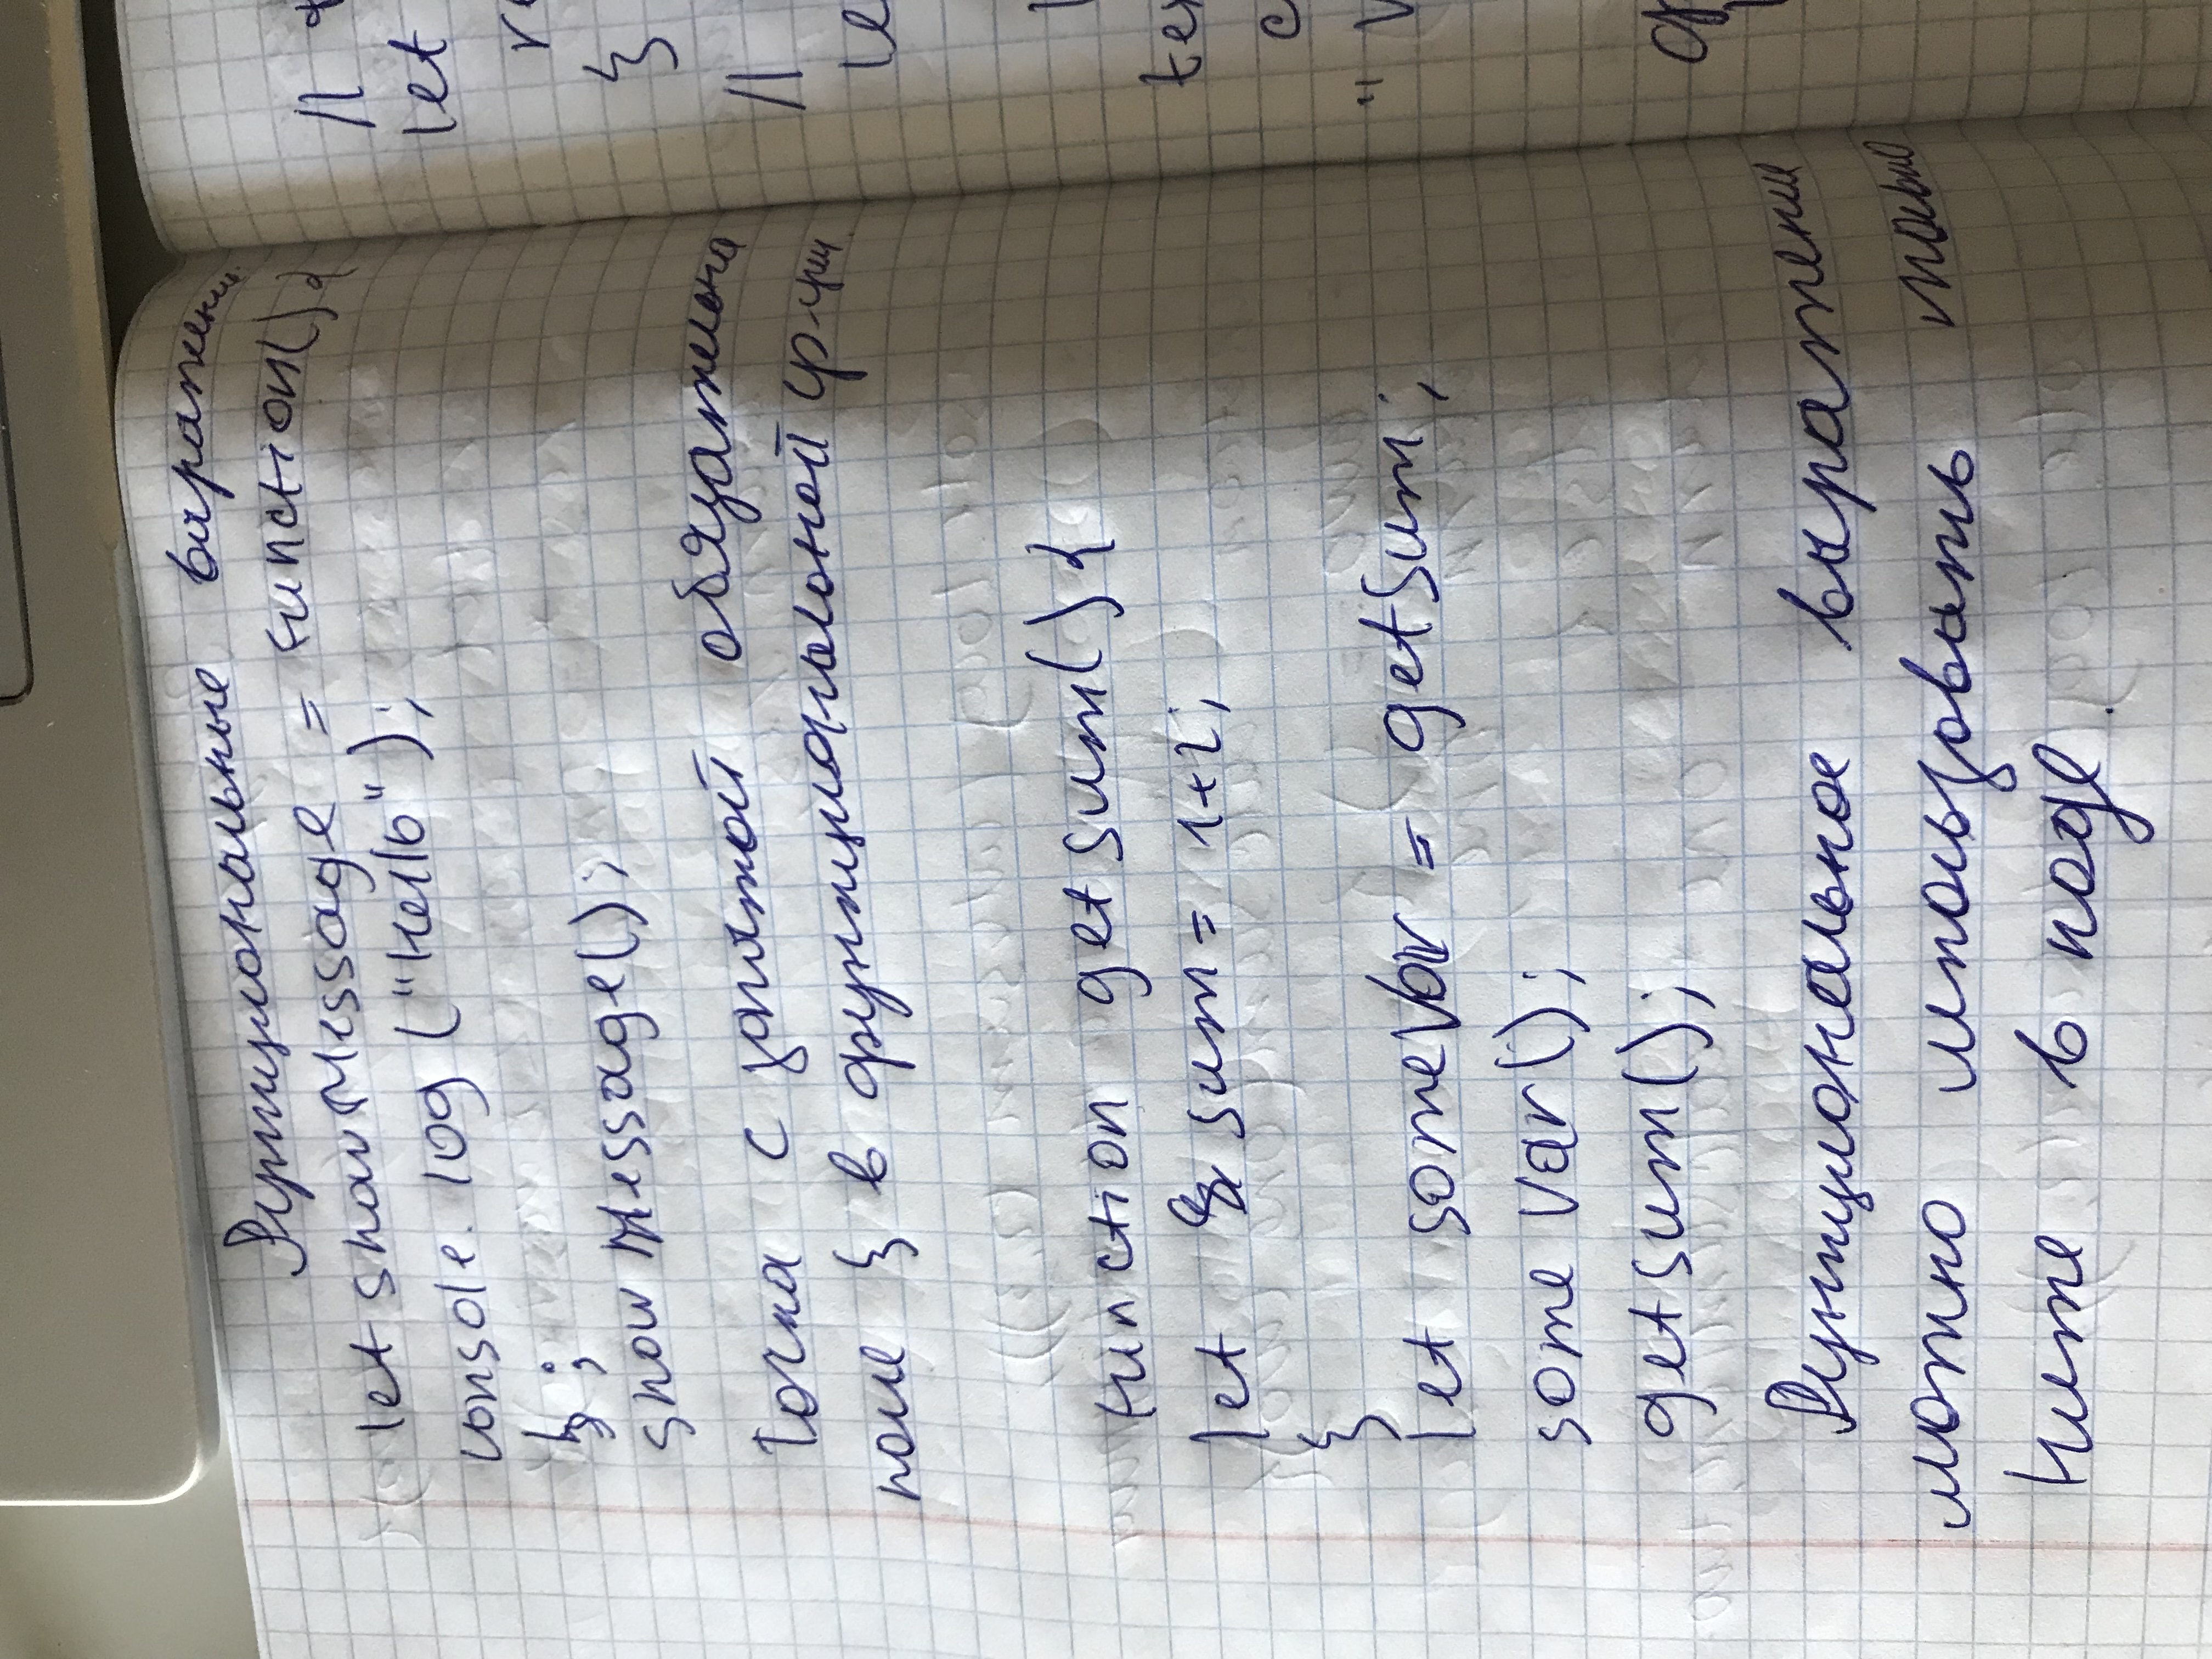 Функциональные выражения.
let showMessage = function(){
console.log ("Hello");
};
showMessage();
Точка с запятой обязательна
после } в функциональной ф-ции.
function getsum(){
let sum = 1+2;
}
let someVar = getSum;
someVar();
getsum();
Функциональное выражение
можно использовать только
ниже в коде.
//
let
re
}
//
le
tex
c
"